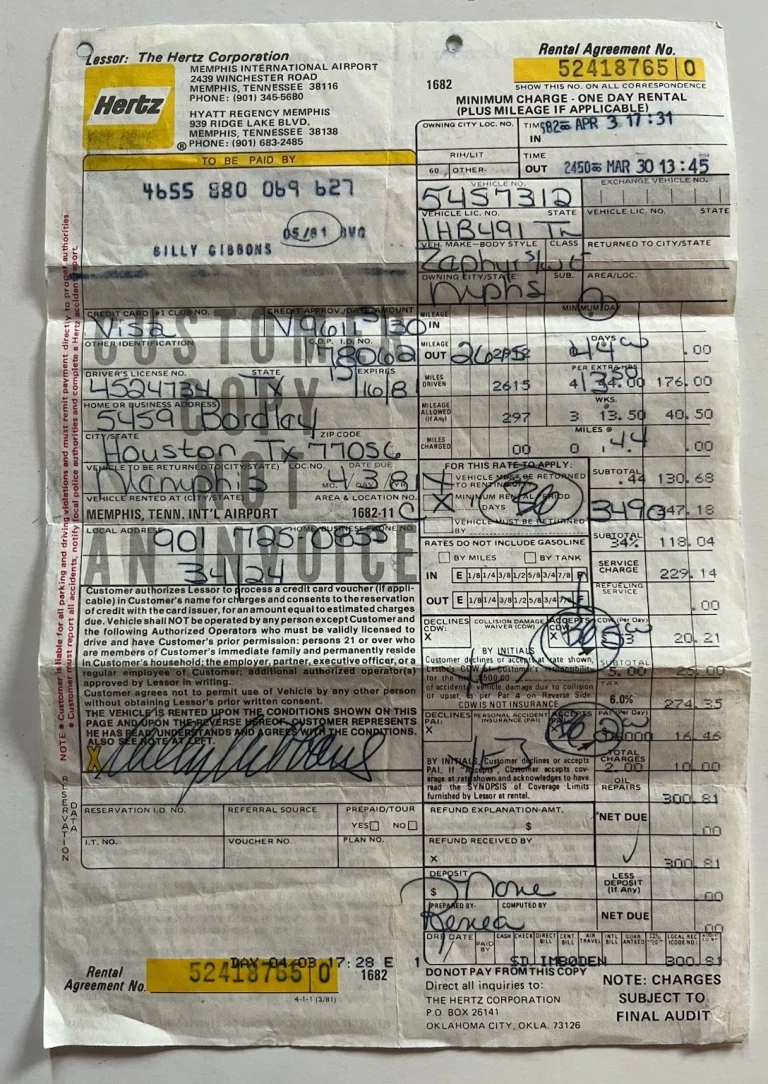 Lessor: The Hertz Corporation
Hertz
MEMPHIS INTERNATIONAL AIRPORT
2439 WINCHESTER ROAD
MEMPHIS, TENNESSEE 38116
PHONE: (901) 345-5680
HYATT REGENCY MEMPHIS
939 RIDGE LAKE BLVD.
MEMPHIS, TENNESSEE 38138
® PHONE: (901) 683-2485
TO BE PAID BY
4655 880 069 627
05/81 AVG
BILLY GIBBONS
CREDIT CARD #1 CLUB NO. CREDIT APPROV./DATE/AMOUNT
Visa
OTHER IDENTIFICATION C.O.P. I.D. NO.
DRIVER'S LICENSE NO. STATE EXPIRES
4524734 TX
HOME OR BUSINESS ADDRESS
5459 Bordley
CITY/STATE ZIP CODE
Houston Tx 77056
VEHICLE TO BE RETURNED TO (CITY/STATE) LOC. NO. DATE DUE
Memphis
VEHICLE RENTED AT (CITY/STATE) AREA & LOCATION NO.
MEMPHIS, TENN. INT'L AIRPORT 1682-11
LOCAL ADDRESS HOME/BUSINESS PHONE NO.
901 725-0855
34124
CUSTOMER
COPY
NOT
AN INVOICE
Customer authorizes Lessor to process a credit card voucher (if appli-
cable) in Customer's name for charges and consents to the reservation
of credit with the card issuer, for an amount equal to estimated charges
due. Vehicle shall NOT be operated by any person except Customer and
the following Authorized Operators who must be validly licensed to
drive and have Customer's prior permission: persons 21 or over who
are members of Customer's immediate family and permanently reside
in Customer's household; the employer, partner, executive officer, or a
regular employee of Customer; additional authorized operator(s)
approved by Lessor in writing.
Customer agrees not to permit use of Vehicle by any other person
without obtaining Lessor's prior written consent.
THE VEHICLE IS RENTED UPON THE CONDITIONS SHOWN ON THIS
PAGE AND UPON THE REVERSE HEREOF. CUSTOMER REPRESENTS
HE HAS READ, UNDERSTANDS AND AGREES WITH THE CONDITIONS.
ALSO SEE NOTE AT LEFT.
X Billy Gibbons
NOTE ● Customer is liable for all parking and driving violations and must remit payment directly to proper authorities.
● Customer must report all accidents, notify local police authorities and complete a Hertz accident report.
RESERVATION DATA
RESERVATION I.D. NO. REFERRAL SOURCE PREPAID/TOUR
YES NO
I.T. NO. VOUCHER NO. PLAN NO.
DAY 04/03 17:28 E 1
Rental
Agreement No. 52418765 0 1682
4-1-1 (3/81)
Rental Agreement No.
52418765 0
1682 SHOW THIS NO. ON ALL CORRESPONDENCE
MINIMUM CHARGE - ONE DAY RENTAL
(PLUS MILEAGE IF APPLICABLE)
OWNING CITY LOC. NO. TIME IN APR 3 17:31
RIH/LIT
60 OTHER TIME OUT MAR 30 13:45
VEHICLE NO. EXCHANGE VEHICLE NO.
5457312
VEHICLE LIC. NO. STATE VEHICLE LIC. NO. STATE
1HB491 Tn
VEH. MAKE-BODY STYLE CLASS RETURNED TO CITY/STATE
Zaphyr
OWNING CITY/STATE SUB. AREA/LOC.
Mphs
MILEAGE IN MINIMUM DAY
MILEAGE OUT DAYS .00
MILES DRIVEN 2615 4 PER EXTRA HR. 176.00
MILEAGE ALLOWED (If Any) 297 3 WKS. 13.50 40.50
MILES CHARGED 00 0 MILES @ .44 .00
FOR THIS RATE TO APPLY:
VEHICLE MUST BE RETURNED
TO RENTING
MINIMUM RENTAL PERIOD
DAYS
VEHICLE MUST BE RETURNED
BY
SUBTOTAL .44 130.68
SUBTOTAL 34% 118.04
RATES DO NOT INCLUDE GASOLINE
BY MILES BY TANK
IN E 1/8 1/4 3/8 1/2 5/8 3/4 7/8 F
OUT E 1/8 1/4 3/8 1/2 5/8 3/4 7/8 F
SERVICE CHARGE 229.14
REFUELING SERVICE .00
DECLINES COLLISION DAMAGE WAIVER (CDW) ACCEPTS CDW (Per Day)
X X 20.21
BY INITIALS
SUBTOTAL
CDW IS NOT INSURANCE
TAX 6.0% 274.35
DECLINES PAI: PERSONAL ACCIDENT INSURANCE (PAI) ACCEPTS PAI (Per Day)
X X 16.46
BY INITIALS, Customer declines or accepts
PAI. If "Accepts", Customer accepts cov-
erage at rate shown and acknowledges to have
read the SYNOPSIS of Coverage Limits
furnished by Lessor at rental.
TOTAL CHARGES 2.00 10.00
OIL REPAIRS 300.81
REFUND EXPLANATION-AMT.
$
NET DUE .00
REFUND RECEIVED BY
X
300.81
DEPOSIT
$ None
LESS DEPOSIT (If Any) .00
PREPARED BY COMPUTED BY
Renea
NET DUE .00
DBR DATE PAID BY CASH CHECK DIRECT BILL CENT BILL AIR TRAVEL INTL BILL
SD IMBODEN 300.81
DO NOT PAY FROM THIS COPY
Direct all inquiries to:
THE HERTZ CORPORATION
P.O. BOX 26141
OKLAHOMA CITY, OKLA. 73126
NOTE: CHARGES
SUBJECT TO
FINAL AUDIT